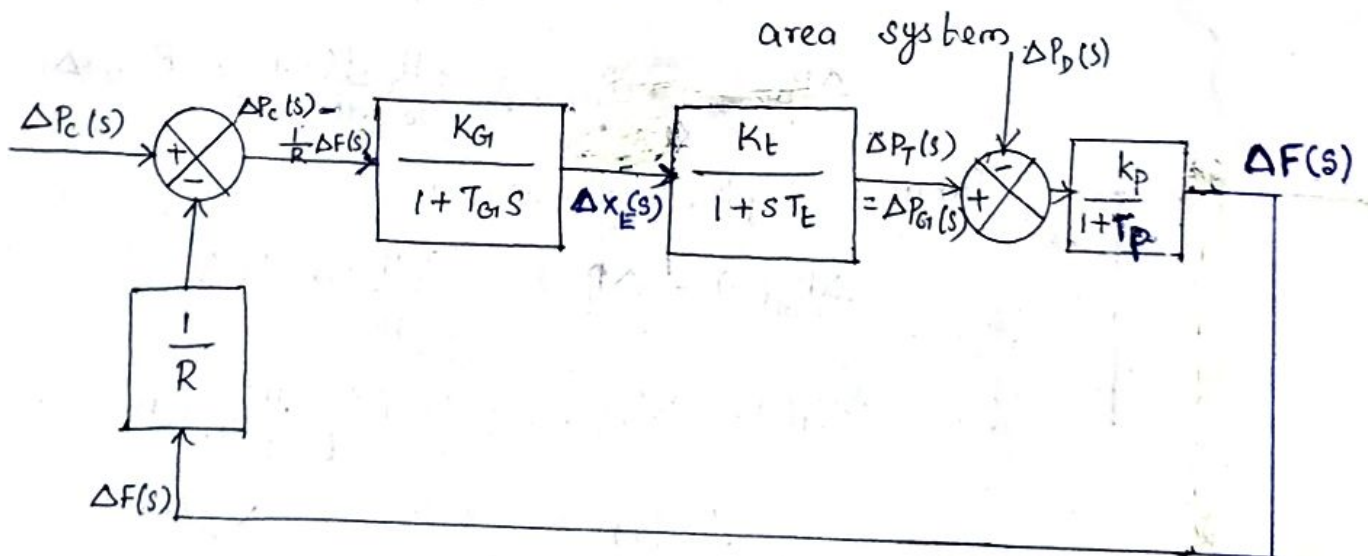 area system
ΔP_D(s)
ΔP_C(s)
+
-
ΔP_C(s) -
1/R ΔF(s)
K_G
1 + T_G S
ΔX_E(s)
K_t
1 + S T_t
ΔP_T(s)
= ΔP_G(s)
-
+
k_p
1 + T_p
ΔF(s)
1
R
ΔF(s)